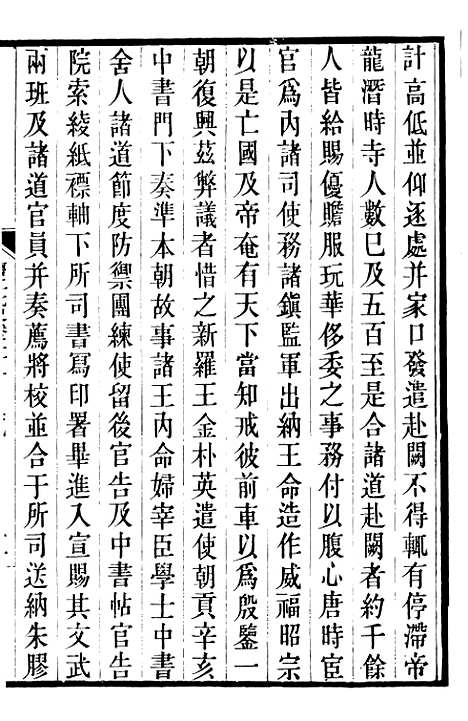 計高低並仰逐處并家口發遣赴闕不得輒有停滯帝
龍潛時寺人數已及五百至是合諸道赴闕者約千餘
人皆給賜優贍服玩華侈委之事務付以腹心唐時宦
官爲內諸司使務諸鎭監軍出納王命造作威福昭宗
以是亡國及帝奄有天下當知戒彼前車以爲殷鑒一
朝復興茲弊議者惜之新羅王金朴英遣使朝貢辛亥
中書門下奏準本朝故事諸王內命婦宰臣學士中書
舍人諸道節度防禦團練使留後官告及中書帖官告
院索綾紙褾軸下所司書寫印署畢進入宣賜其文武
兩班及諸道官員并奏薦將校並合于所司送納朱膠